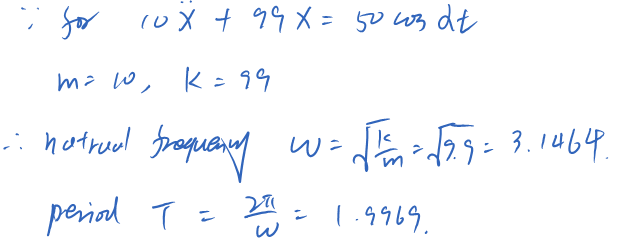 ∵ for 10ẍ + 99x = 50 cos dt
m = 10, k = 99
∴ natrual frequency ω = √(k/m) = √9.9 = 3.1464.
period T = 2π/ω = 1.9969.